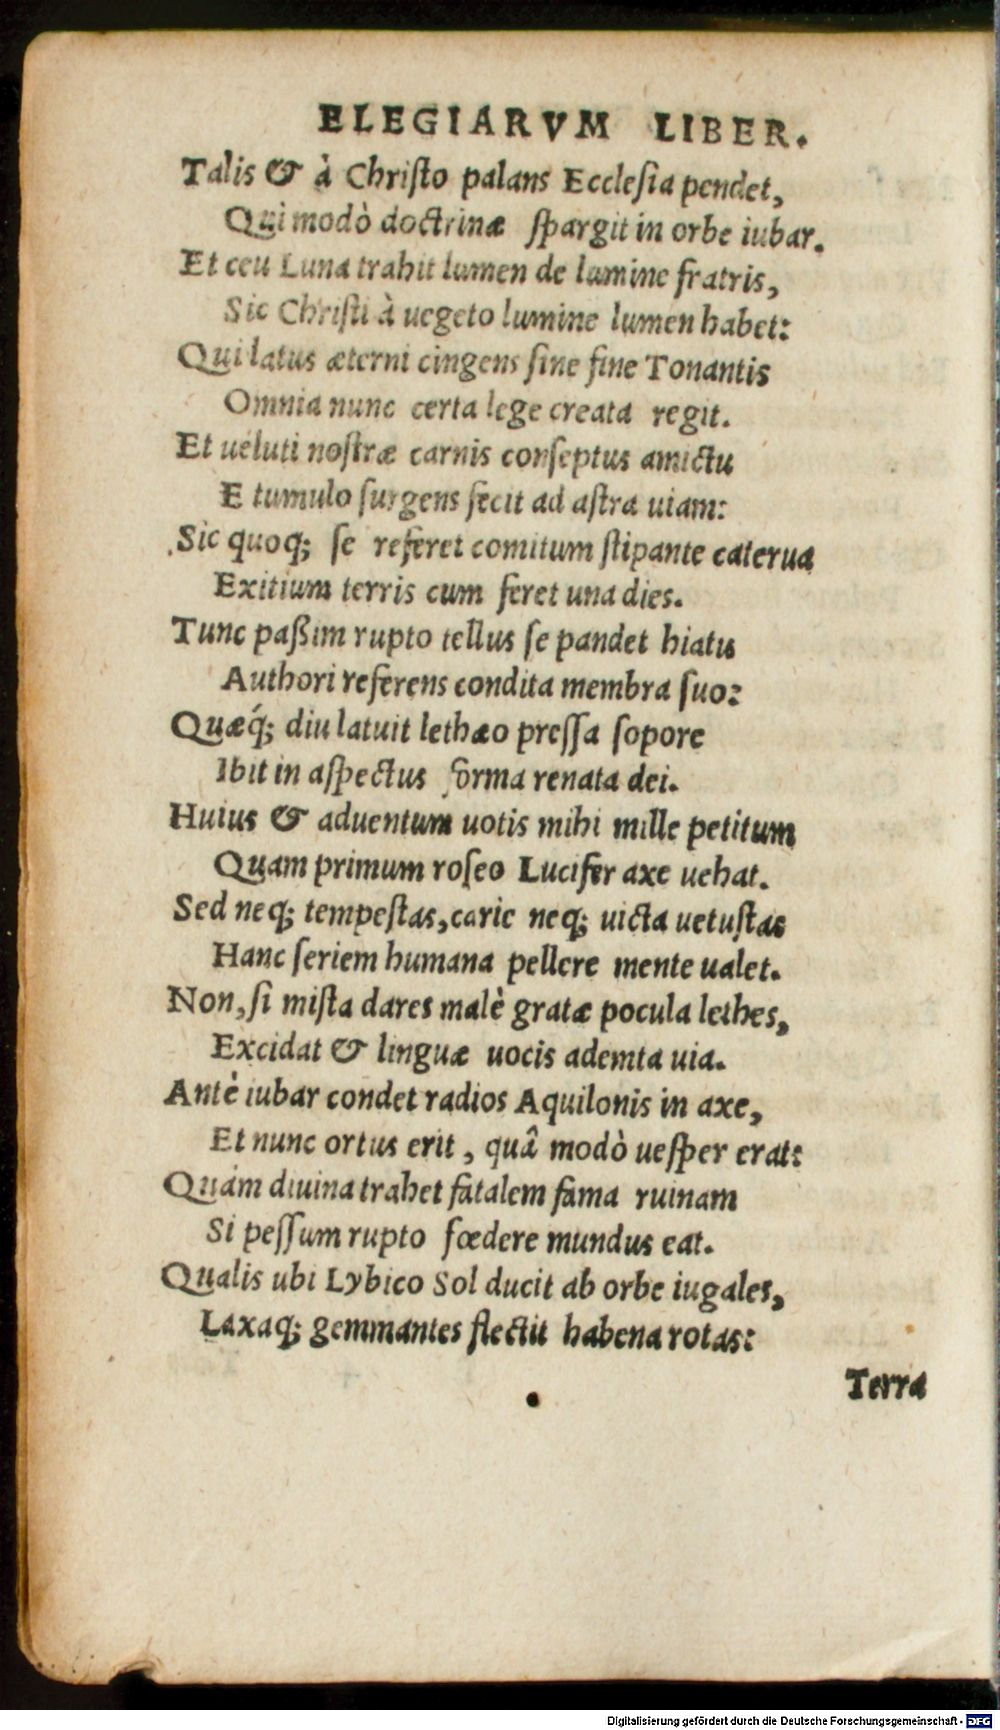 ELEGIARVM LIBER.
Talis & à Christo palans Ecclesia pendet,
Qui modò doctrinæ spargit in orbe iubar.
Et ceu Luna trahit lumen de lumine fratris,
Sic Christi à uegeto lumine lumen habet:
Qui latus æterni cingens sine fine Tonantis
Omnia nunc certa lege creata regit.
Et ueluti nostræ carnis conseptus amictu
E tumulo surgens fecit ad astra uiam:
Sic quoq; se referet comitum stipante caterua
Exitium terris cum feret una dies.
Tunc paßim rupto tellus se pandet hiatu
Authori referens condita membra suo:
Quæq́; diu latuit lethæo pressa sopore
Ibit in aspectus forma renata dei.
Huius & aduentum uotis mihi mille petitum
Quam primum roseo Lucifer axe uehat.
Sed neq; tempestas, carie neq; uicta uetustas
Hanc seriem humana pellere mente ualet.
Non, si mista dares malè gratæ pocula lethes,
Excidat & linguæ uocis ademta uia.
Antè iubar condet radios Aquilonis in axe,
Et nunc ortus erit, quâ modò uesper erat:
Quàm diuina trahet fatalem fama ruinam
Si pessum rupto fœdere mundus eat.
Qualis ubi Lybico Sol ducit ab orbe iugales,
Laxaq; gemmantes flectit habena rotas:
Terra
Digitalisierung gefördert durch die Deutsche Forschungsgemeinschaft - DFG